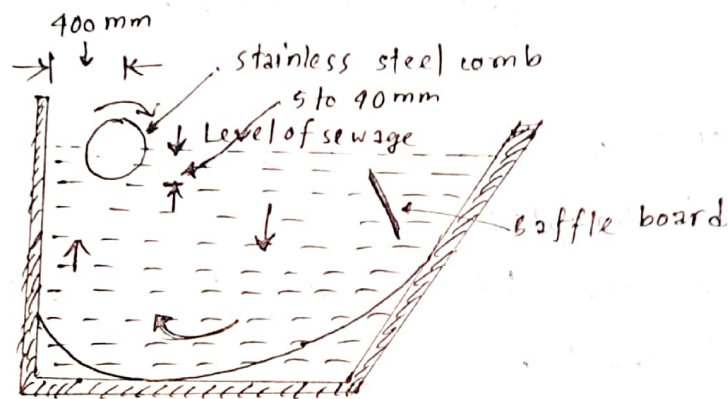 400 mm
stainless steel comb
5 to 40mm
Level of sewage
Baffle board